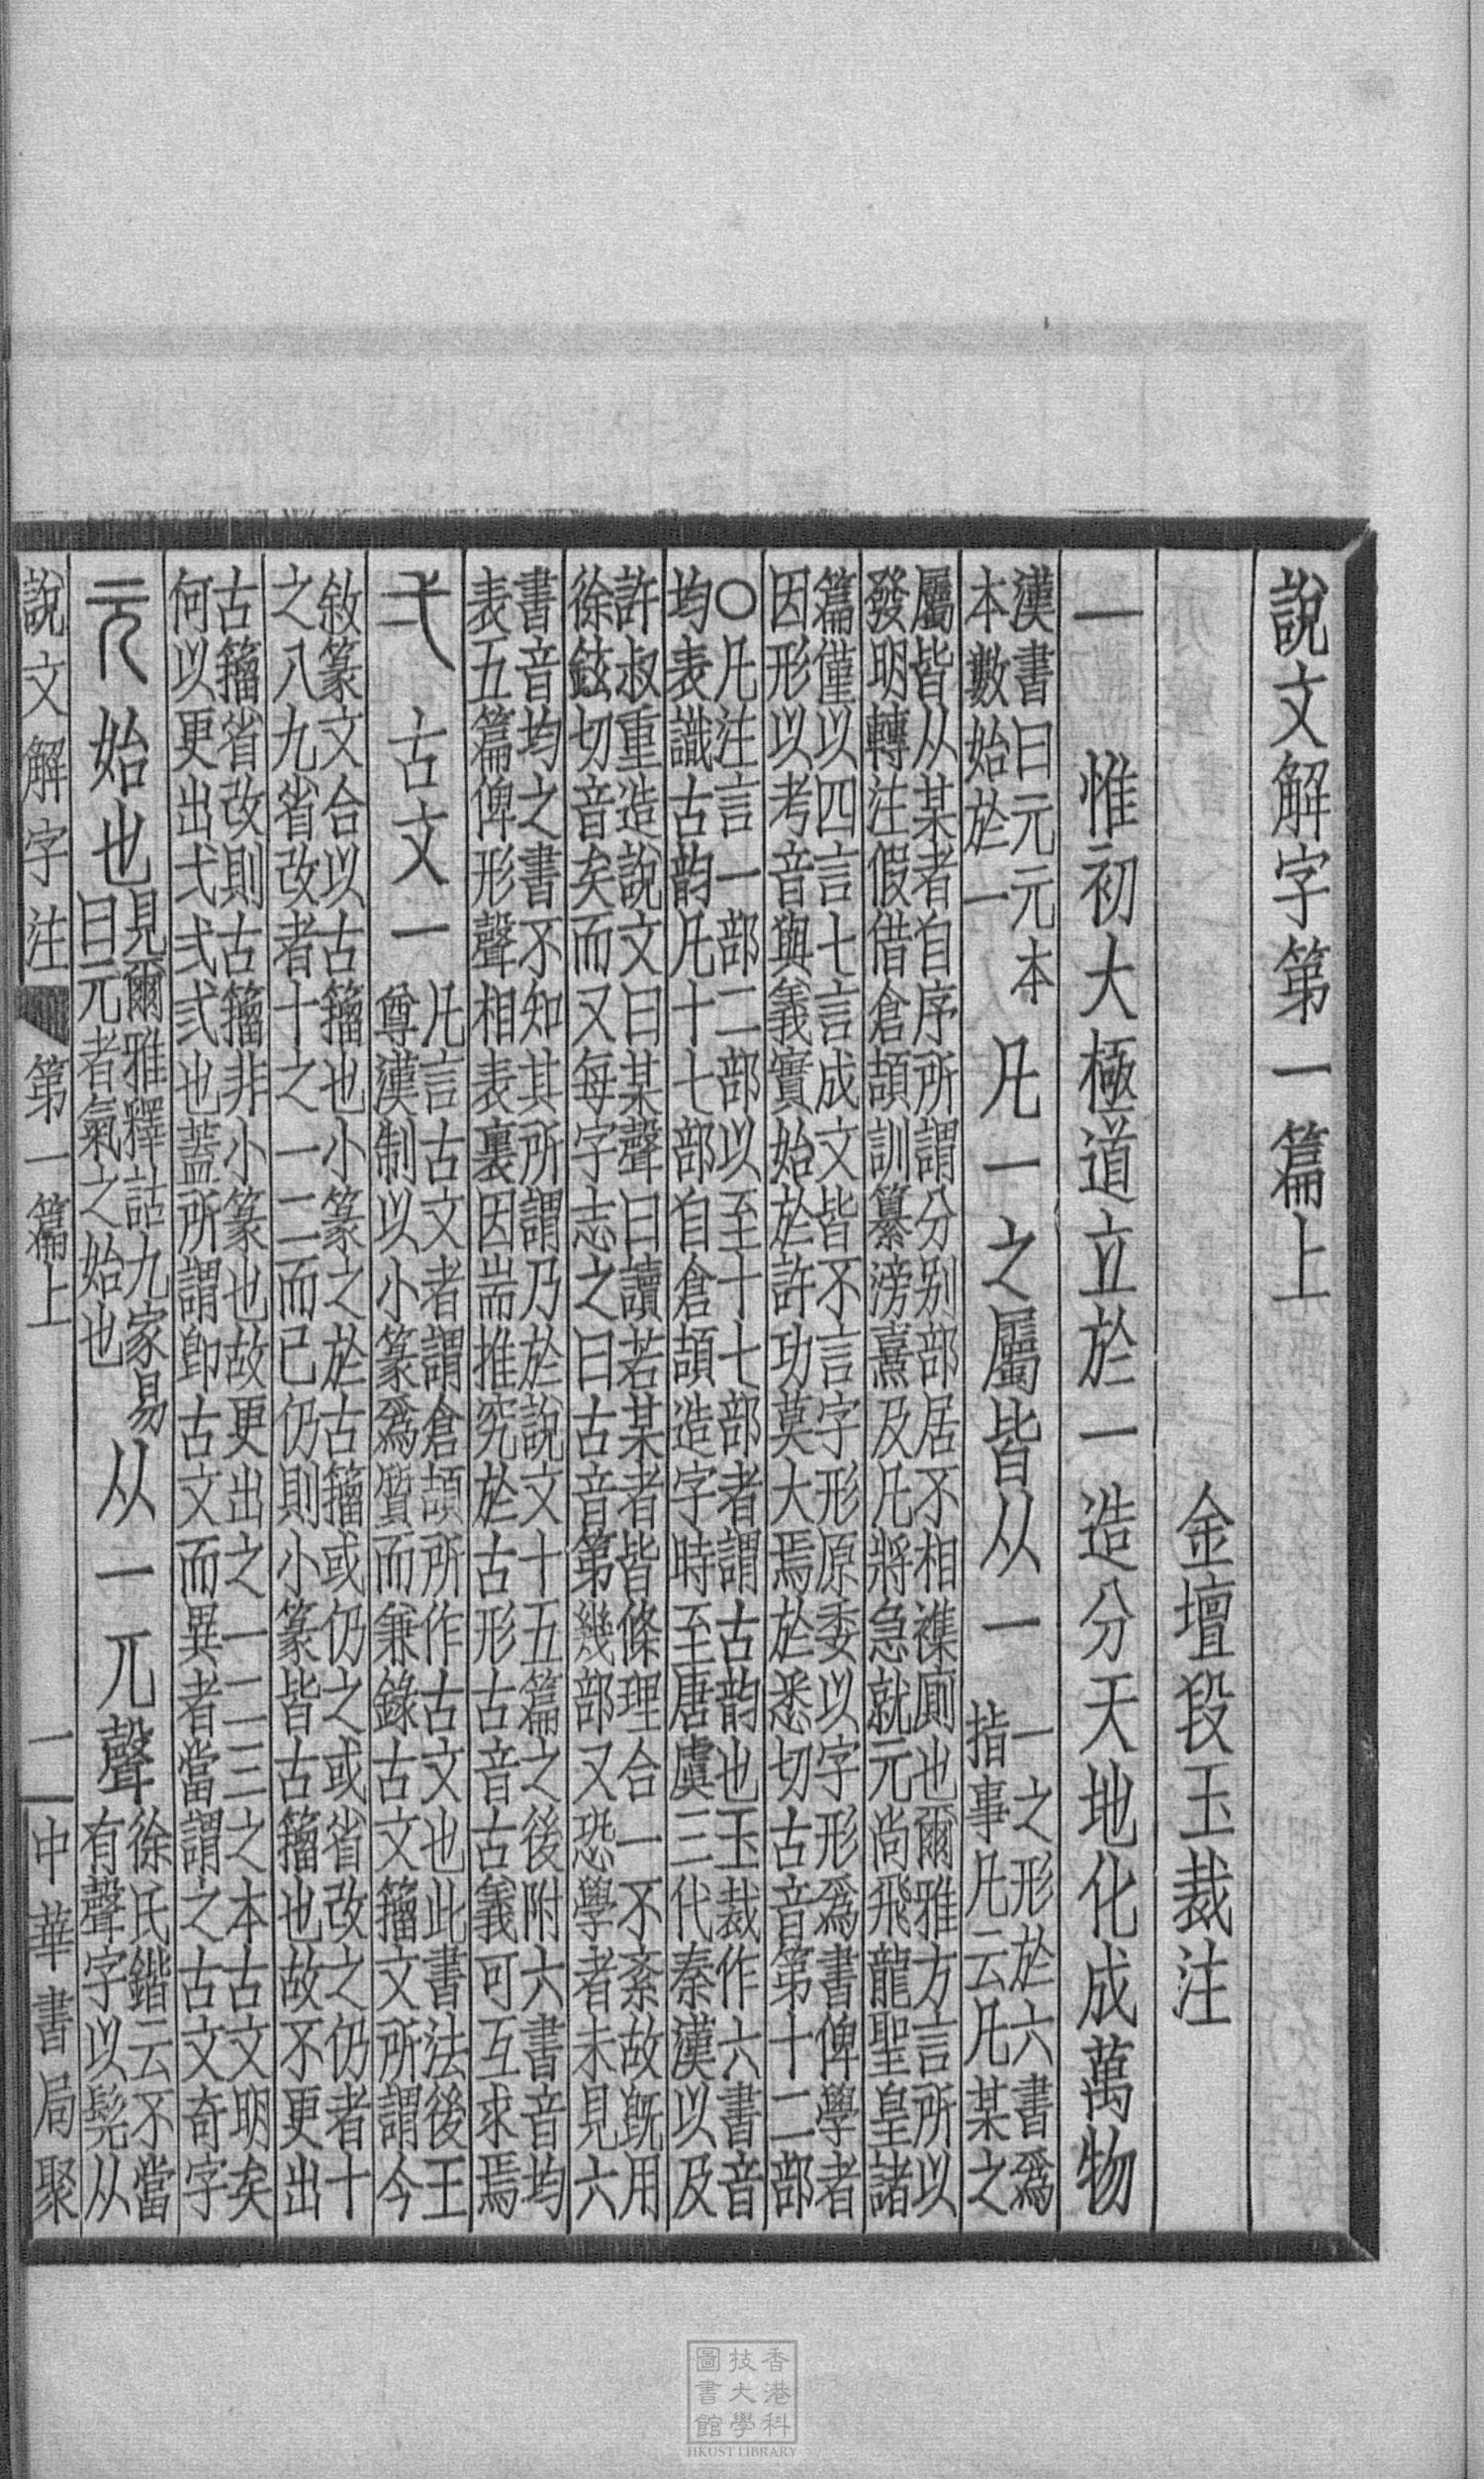 說文解字第一篇上
金壇段玉裁注
一 惟初大極道立於一造分天地化成萬物
漢書曰元元本
本數始於一
凡一之屬皆从一
一之形於六書爲
指事凡云凡某之
屬皆从某者自序所謂分别部居不相襍廁也爾雅方言所以
發明轉注假借倉頡訓纂滂熹及凡將急就元尚飛龍聖皇諸
篇僅以四言七言成文皆不言字形原委以字形爲書俾學者
因形以考音與義實始於許功莫大焉於悉切古音第十二部
○凡注言一部二部以至十七部者謂古韵也玉裁作六書音
均表識古韵凡十七部自倉頡造字時至唐虞三代秦漢以及
許叔重造說文曰某聲曰讀若某者皆條理合一不紊故旣用
徐鉉切音矣而又每字志之曰古音第幾部又恐學者未見六
書音均之書不知其所謂乃於說文十五篇之後附六書音均
表五篇俾形聲相表裏因耑推究於古形古音古義可互求焉
弌 古文一
凡言古文者謂倉頡所作古文也此書法後王
尊漢制以小篆爲質而兼錄古文籀文所謂今
敘篆文合以古籀也小篆之於古籀或仍之或省改之仍者十
之八九省改者十之一二而已仍則小篆皆古籀也故不更出
古籀省改則古籀非小篆也故更出之一二三之本古文明矣
何以更出弌弍弎也蓋所謂卽古文而異者當謂之古文奇字
元 始也
見爾雅釋詁九家易
曰元者氣之始也
从一兀聲
徐氏鍇云不當
有聲字以髡从
說文解字注 第一篇上 一 中華書局聚
香港科技大學圖書館
HKUST LIBRARY